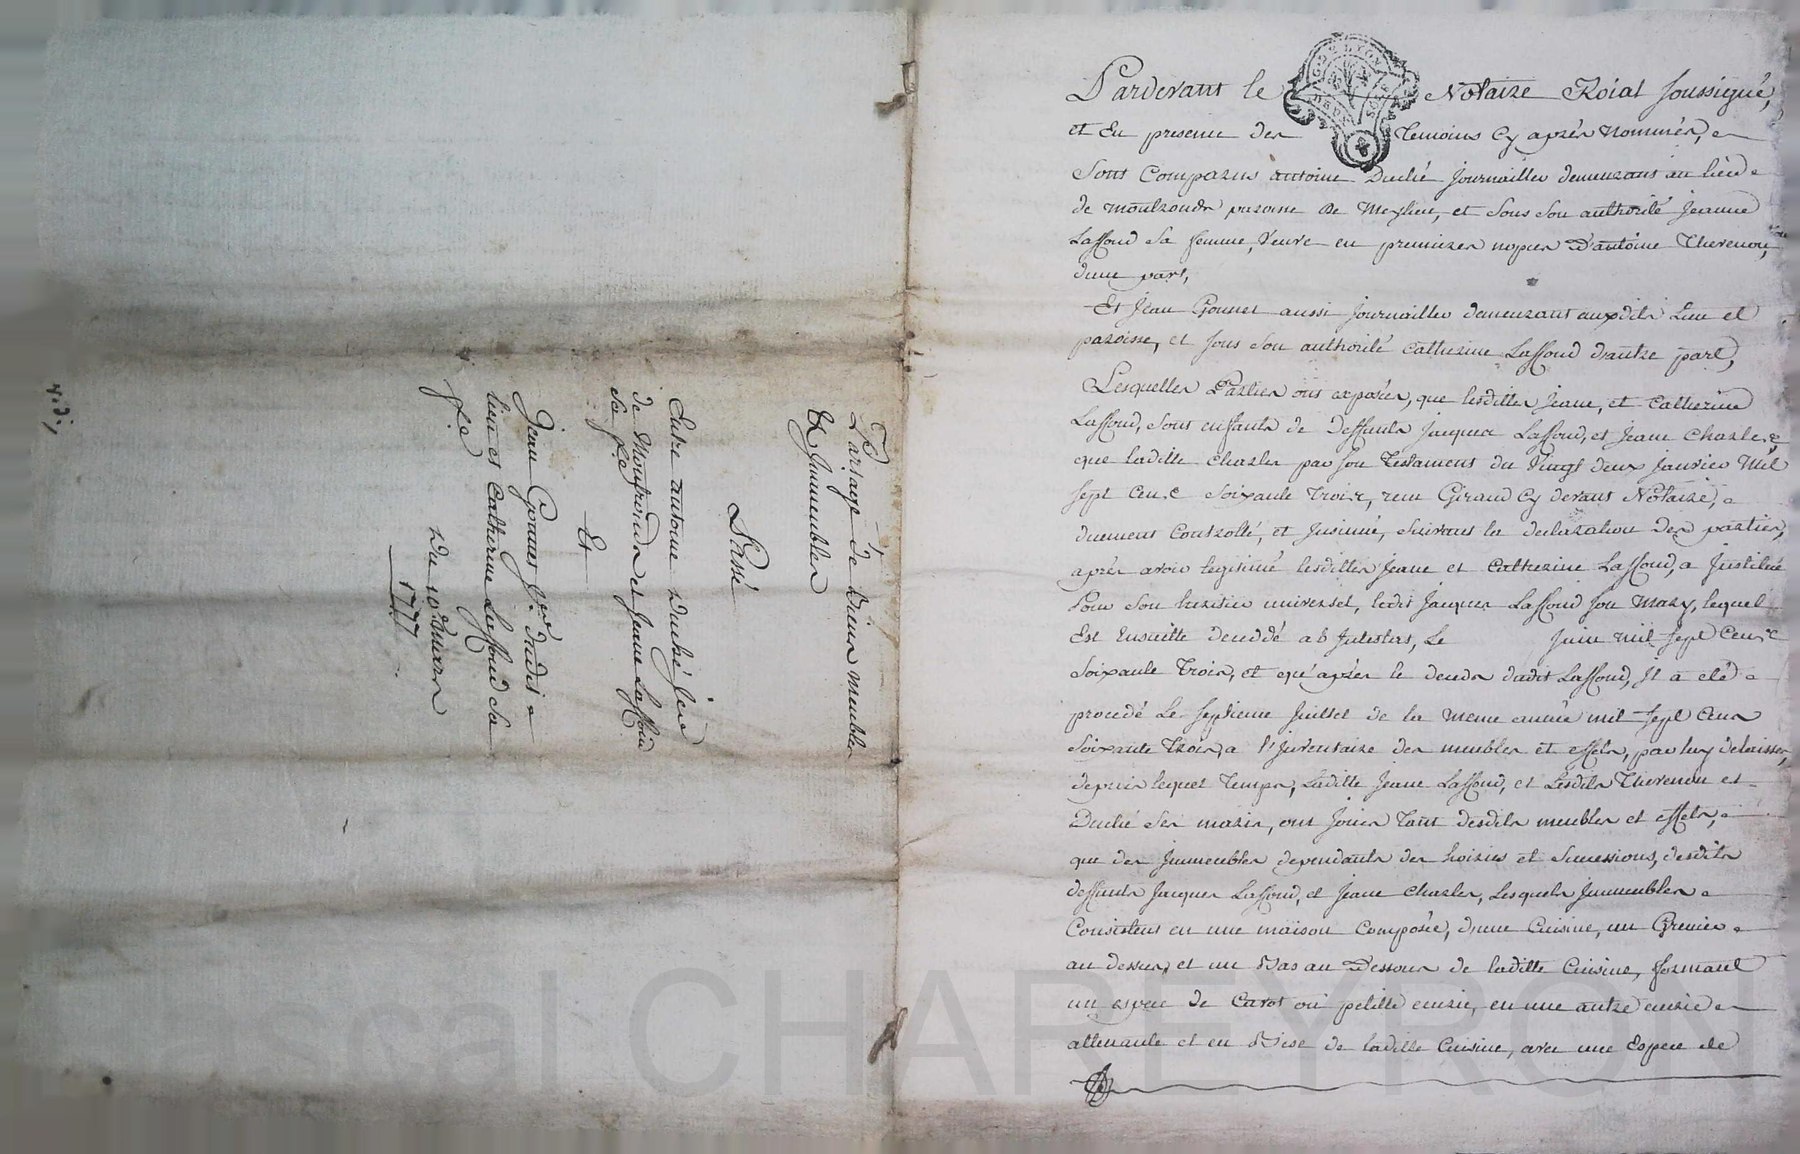 Partage de Biens meubles
& Immeubles
Passé
Entre antoine Duché Jer
de Montronds et Jeane Laffond
sa fe
Et
Jean Gonnet Jer dudit
lieu et Catherine Laffond sa
fe
Du 10e mars
1777
Pardevant le Notaire Roial soussigné,
et En presence des Temoins Cy aprés nommés,
Sont Comparus antoine Duché Journaillier demeurant au lieu
de montronds paroisse de Meylieu, et sous son authorité Jeanne
Laffond sa femme, Veuve en premieres nopces D'antoine Thevenon,
dune part,
Et Jean Gonnet aussi Journaillier demeurant auxdits Lieu et
paroisse, et sous son authorité Catherine Laffond d'autre part,
Lesquelles Parties ont exposés, que lesdittes Jeane, et Catherine
Laffond, sont enfants de deffunts Jacques Laffond, et Jeane Charles,
que laditte Charles par son Testament du Vingt deux Janvier Mil
sept Cent Soixante Trois, reçu Giraud Cy devant Notaire,
duement Controllé, et Insinué, suivant la declaration des parties,
aprés avoir legitimé lesdittes Jeane et Catherine Laffond, a Institué
Pour son heritier universel, ledit Jacques Laffond son Mary, lequel
Est Ensuitte decedé ab Intestat, Le Juin mil sept Cent
Soixante Trois, et qu'aprés le deceds dudit Laffond, Il a eté
procedé Le septieme Juillet de la meme année mil sept Cent
Soixante Trois, a l'Inventaire des meubles et effets, par luy delaissés,
depuis lequel Temps, Laditte Jeane Laffond, et Lesdits Thevenon et
Duché ses maris, ont Jouis Tant desdits meubles et effets,
que des Immeubles dependants des hoiries et successions, desdits
deffunts Jacques Laffond, et Jeane Charles, Lesquels Immeubles
Consistent en une maison Composée, d'une Cuisine, un Grenier
au dessus, et un Bas au Dessous de laditte Cuisine, formant
un espece de Cavot ou petitte ecurie, en une autre ecurie
attenante et en Bise de laditte Cuisine, avec une Espece de
Pascal CHAREYRON